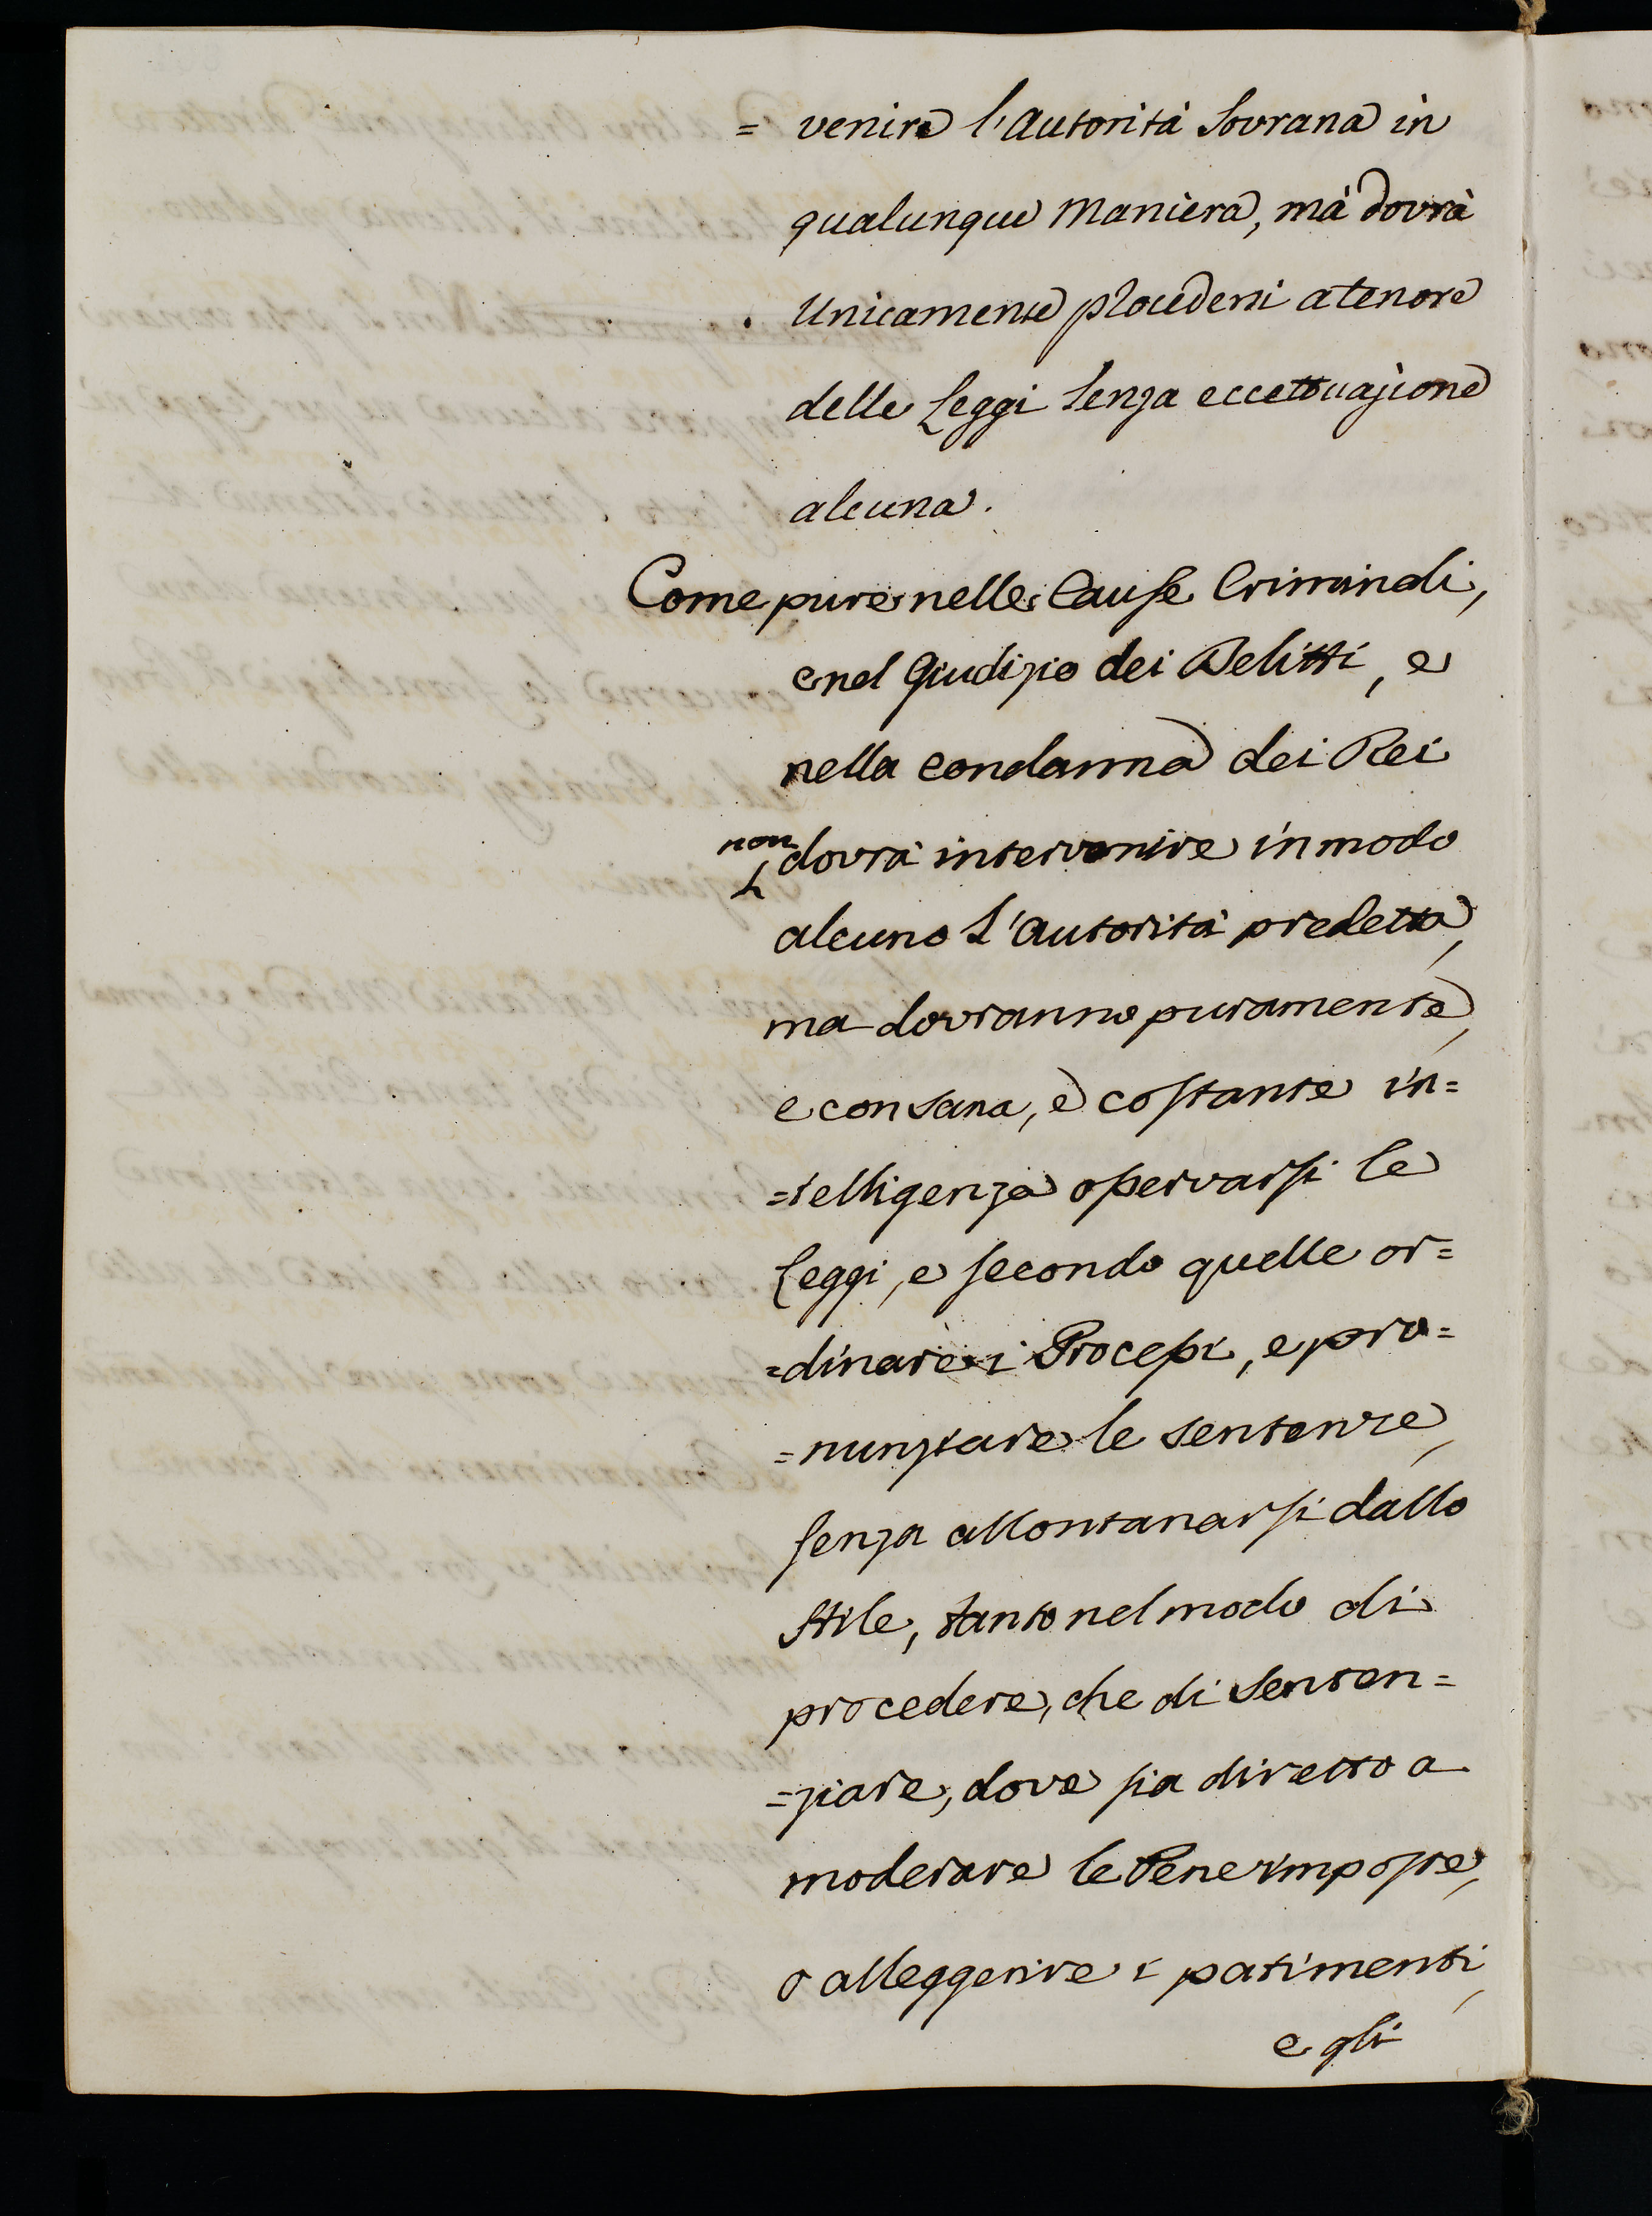 = venire l'Autorità Sovrana in
qualunque Maniera, mà dovrà
Unicamente procedersi a tenore
delle Leggi senza eccettuazione
alcuna.
Come pure nelle Cause Criminali,
e nel Giudizio dei Delitti, e
nella condanna dei Rei
non
dovrà intervenire in modo
alcuno L'autorità predetta,
ma dovranno puramente,
e con sana, e costante in=
=telligenza osservarsi le
Leggi, e secondo quelle or=
=dinare i Processi, e pro=
=nunziare le sentenze,
senza allontanarsi dallo
Stile, tanto nel modo di
procedere, che di senten=
=ziare, dove sia diretto a
moderare le Pene imposte,
o alleggerire i patimenti,
e gli